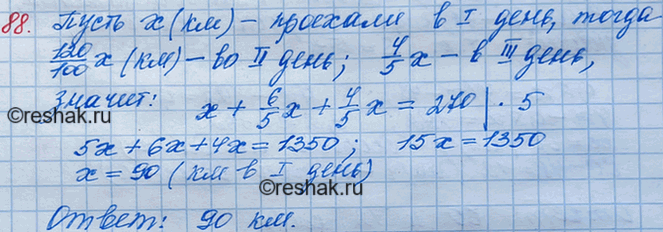 88. Пусть x (км) – проехали в I день, тогда
120/100 x (км) – во II день; 4/5 x – в III день,
значит: x + 6/5 x + 4/5 x = 270 | · 5
©reshak.ru
5x + 6x + 4x = 1350; 15x = 1350
x = 90 (км в I день)
©reshak.ru
Ответ: 90 км.